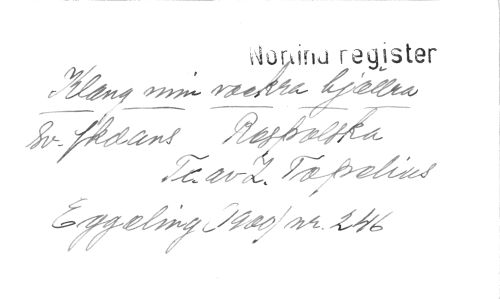 Nortind register
Klang min vackra bjällra
Sv. skdans Raspolska
Tc. av Z. Topelius
Eggeling (1900) nr. 246